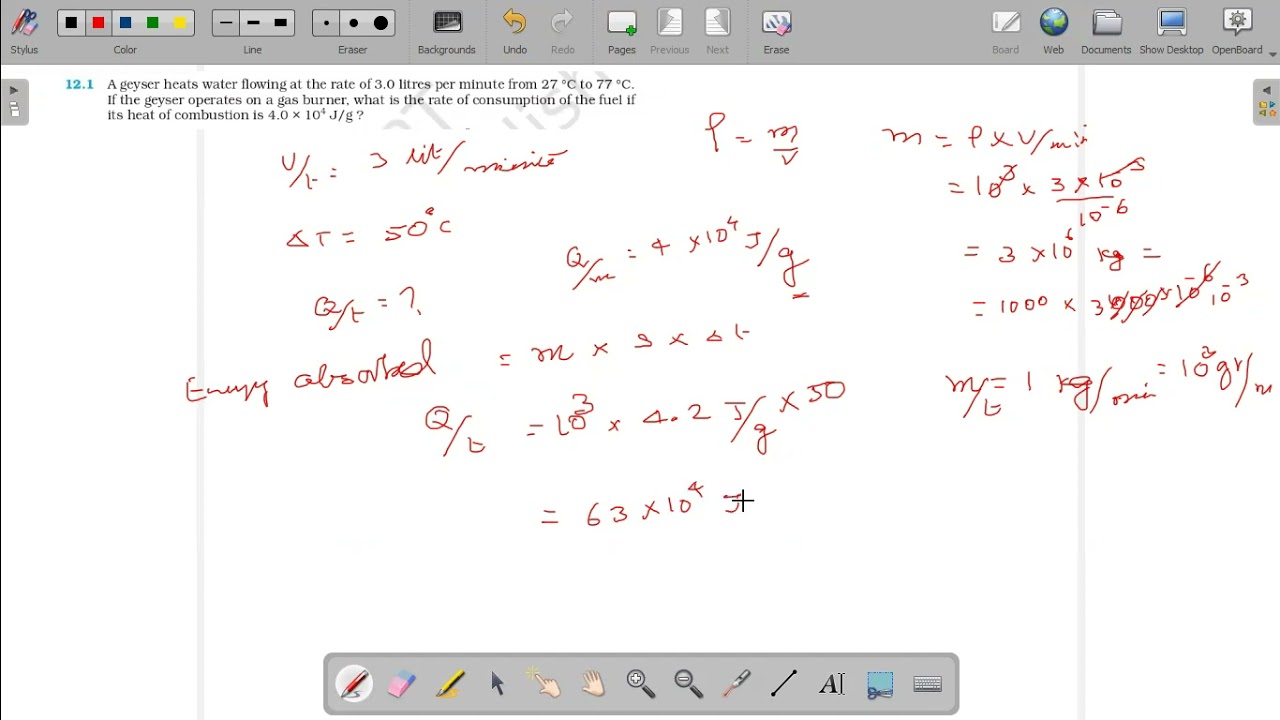 Stylus
Color
Line
Eraser
Backgrounds
Undo
Redo
Pages
Previous
Next
Erase
Board
Web
Documents
Show Desktop
OpenBoard
12.1 A geyser heats water flowing at the rate of 3.0 litres per minute from 27 °C to 77 °C.
If the geyser operates on a gas burner, what is the rate of consumption of the fuel if
its heat of combustion is 4.0 × 10⁴ J/g ?
V/t = 3 lit/minute
ΔT = 50°C
Q/t = ?
Q/m = 4 × 10⁴ J/g
ρ = m/v
m = ρ × V/min
= 10³ × 3 × 10⁻³/10⁻⁶
= 3 × 10⁶ kg =
= 1000 × 3000 × 10⁻⁶ 10⁻³
m/t = 1 kg/min = 10³ gr/m
Energy absorbed = m × s × Δt
Q/t = 10³ × 4.2 J/g × 50
= 63 × 10⁴ J